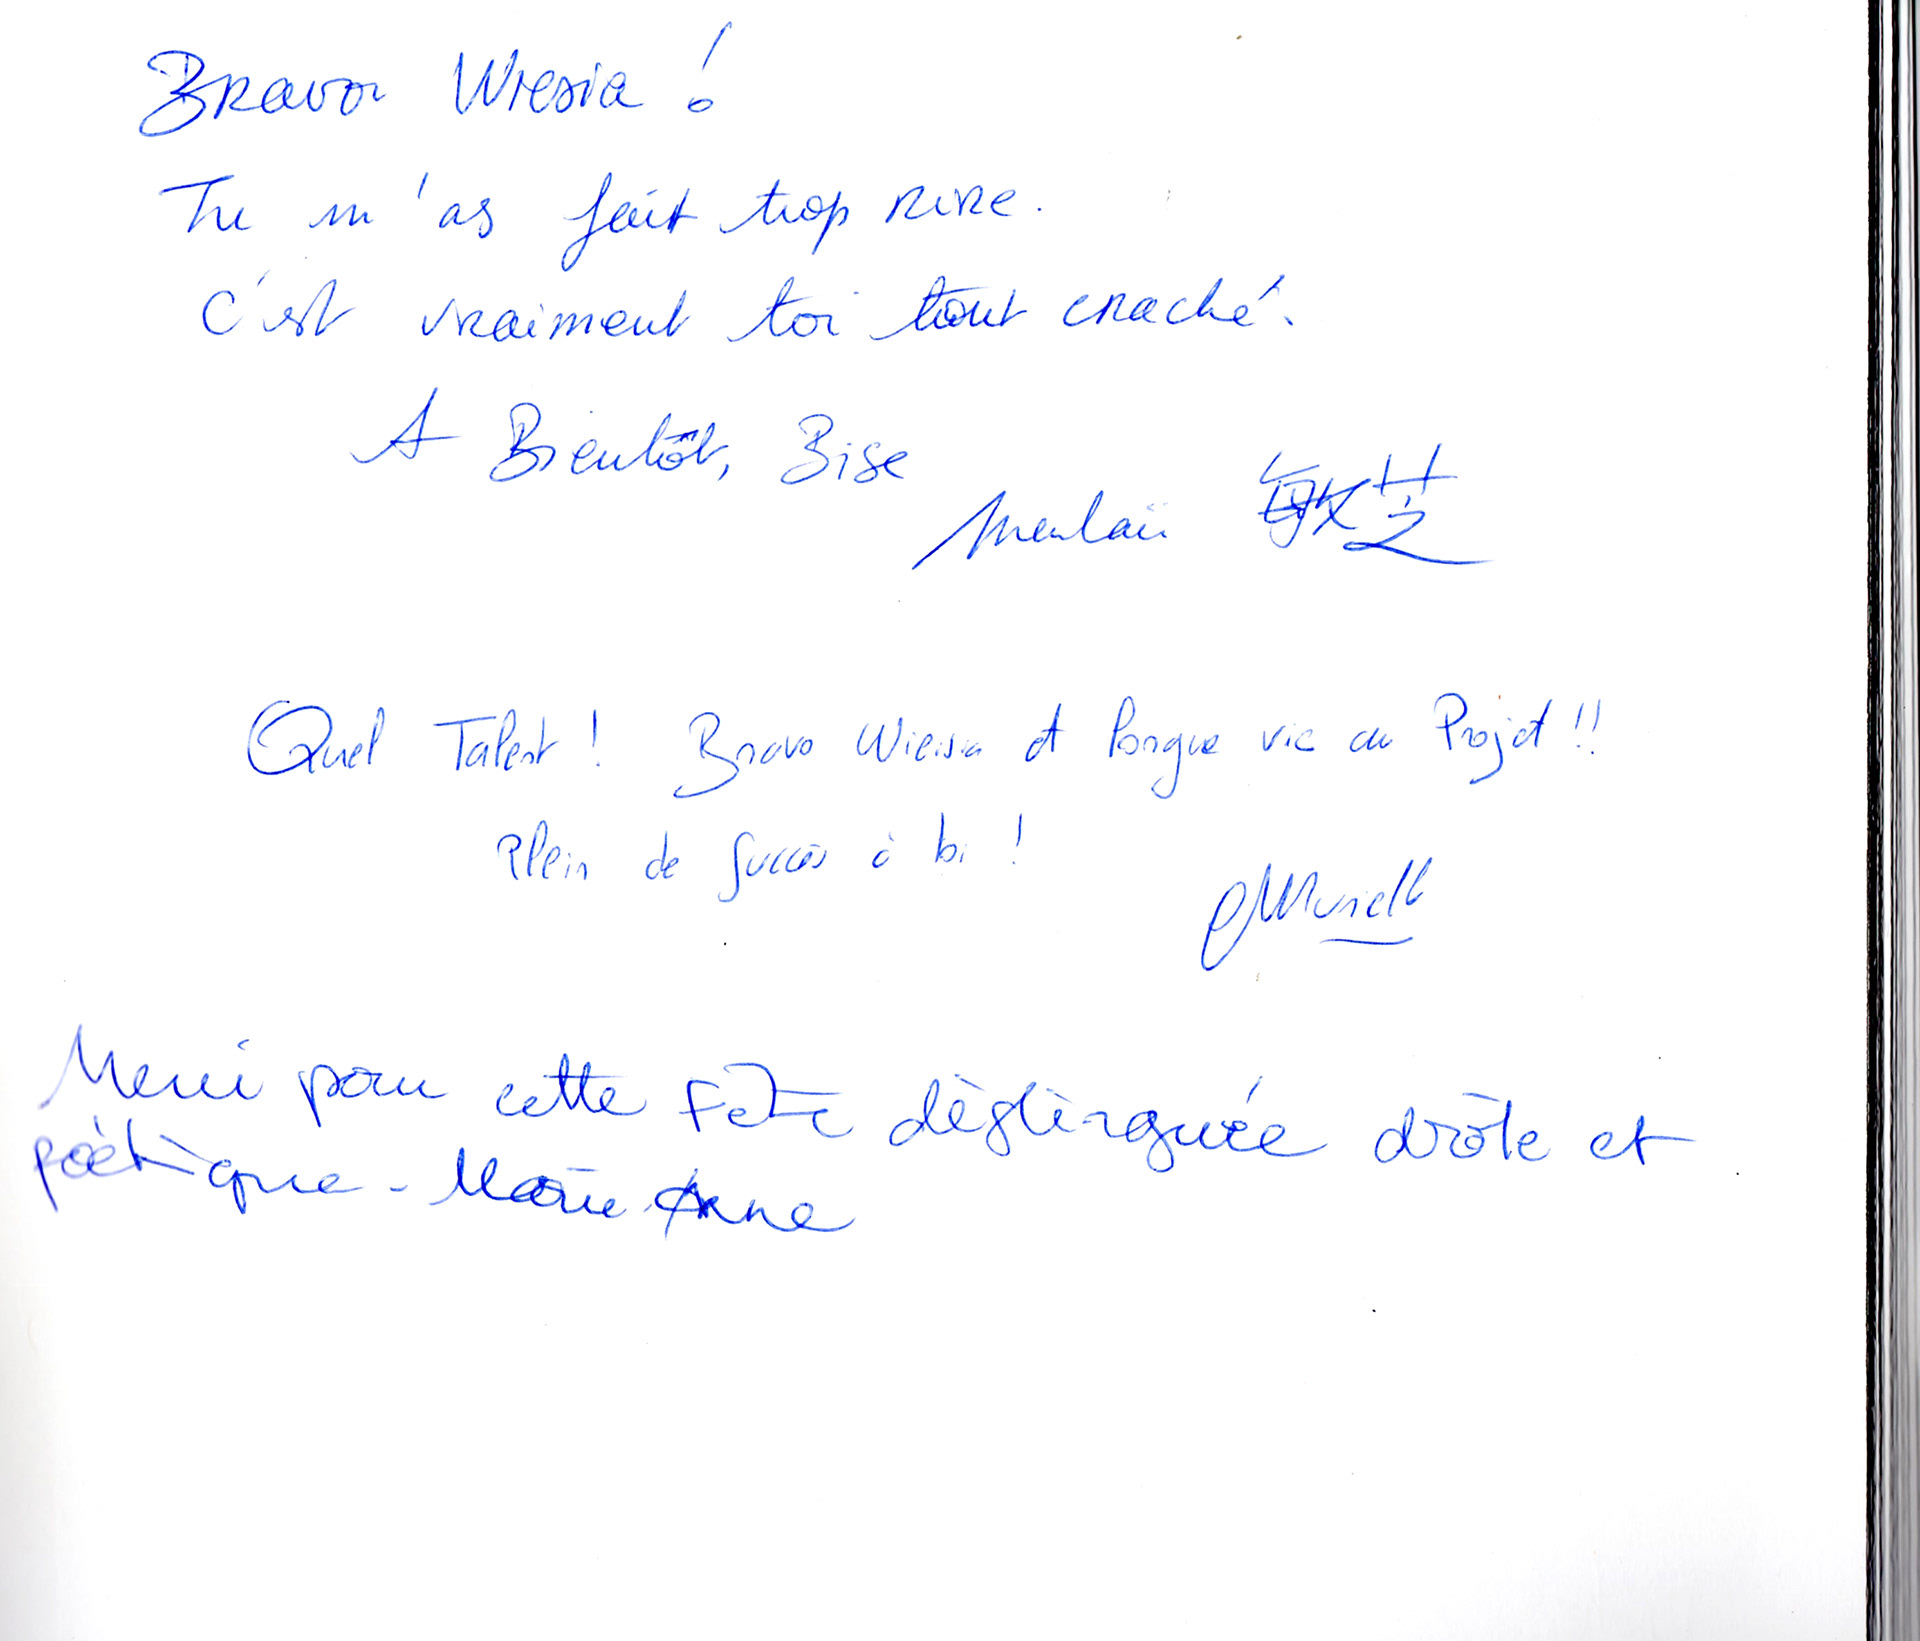 Bravo Wiesia !
Tu m'as fait trop rire.
C'est vraiment toi tout craché.
A Bientôt, Bise
敏芝
Quel Talent ! Bravo Wiesia et longue vie au Projet !!
Plein de succès à toi !
Murielle
Merci pour cette Fête distinguée drôle et
poétique - Marie Anne